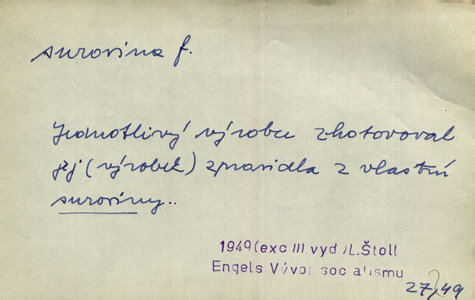 surovina f.
Jednotlivý výrobce zhotovoval
jej (výrobek) zpravidla z vlastní
suroviny..
1949(exc III.vyd)L.Štoll
Engels Vývoj socialismu
27,49